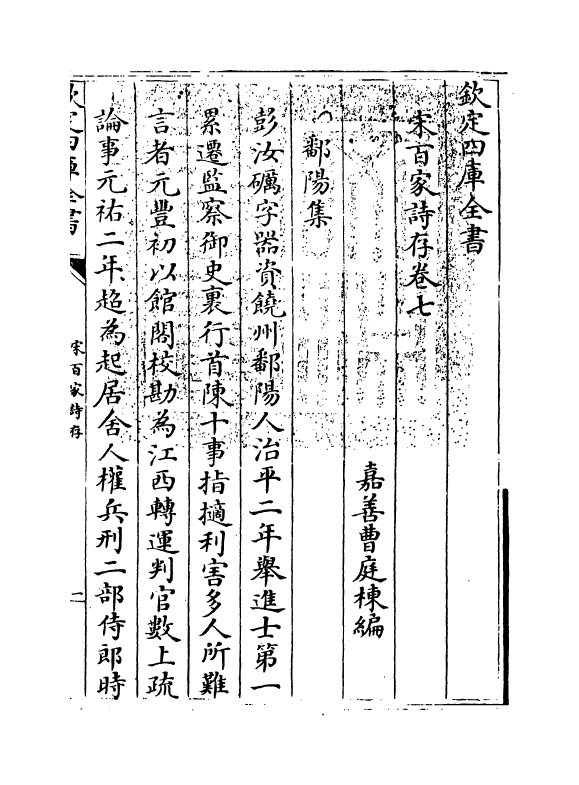 欽定四庫全書
宋百家詩存卷七
嘉善曹庭棟編
鄱陽集
彭汝礪字器資饒州鄱陽人治平二年舉進士第一
累遷監察御史裏行首陳十事指擿利害多人所難
言者元豐初以館閣校勘為江西轉運判官數上疏
論事元祐二年超為起居舍人權兵刑二部侍郎時
欽定四庫全書
宋百家詩存
二